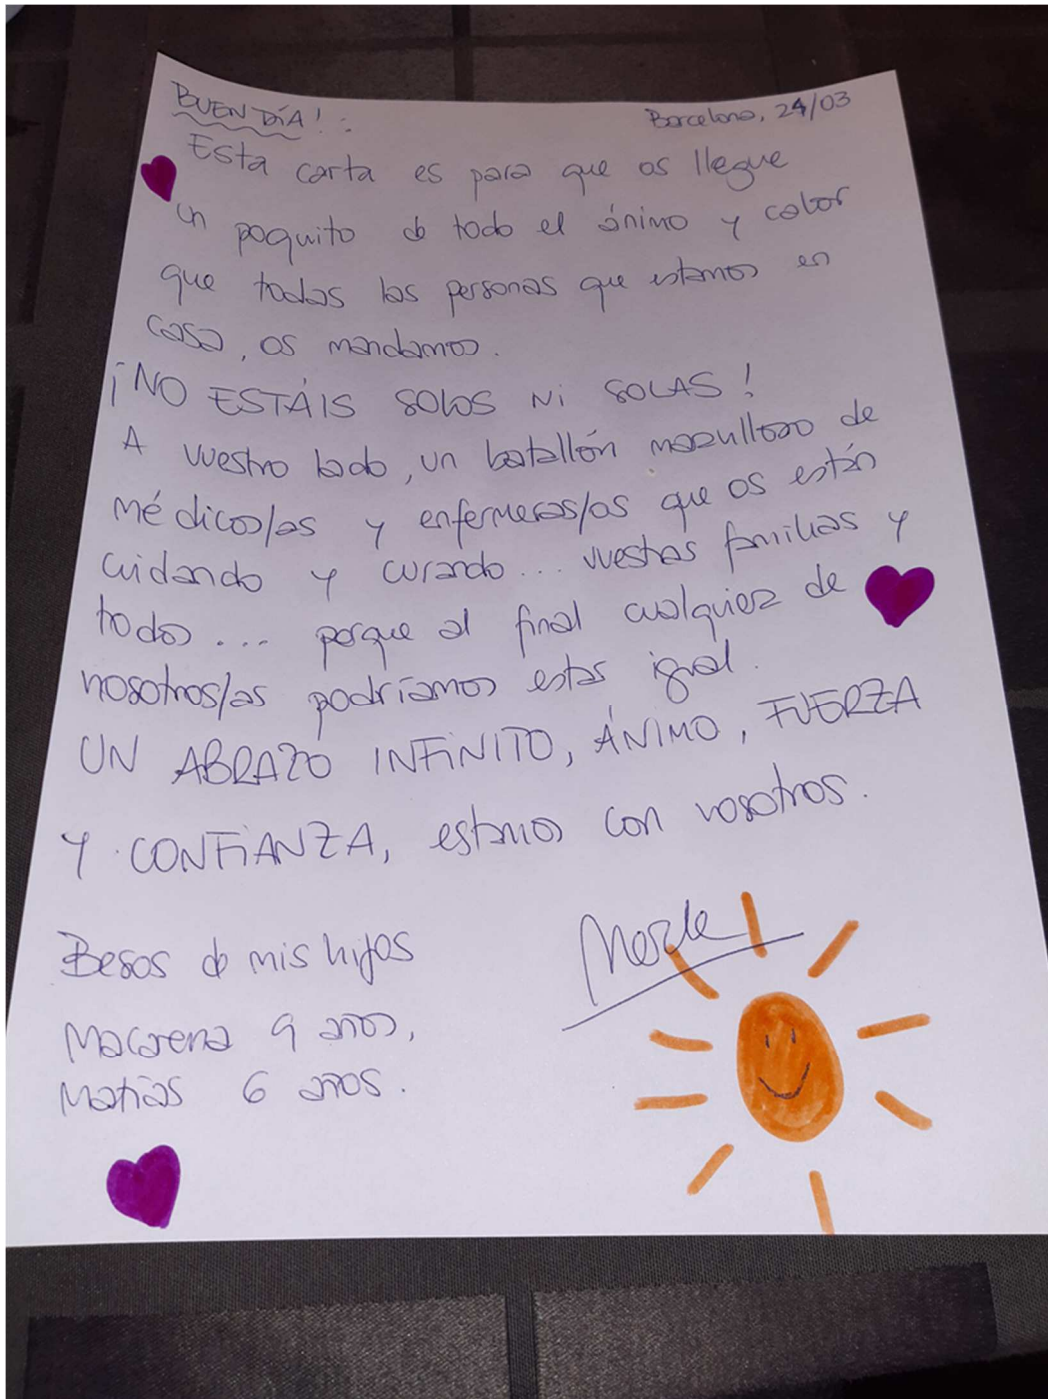 BUEN DÍA! :
Barcelona, 24/03
Esta carta es para que os llegue
un poquito de todo el ánimo y calor
que todas las personas que estamos en
casa, os mandamos.
¡NO ESTÁIS SOLOS NI SOLAS!
A vuestro lado, un batallón maravilloso de
médicos/as y enfermeras/os que os están
cuidando y curando... vuestras familias y
todos .... porque al final cualquiera de
nosotros/as podríamos estar igual.
UN ABRAZO INFINITO, ÁNIMO, FUERZA
Y CONFIANZA, estamos con vosotros.
Besos de mis hijos
Macarena 9 años,
Matías 6 años.